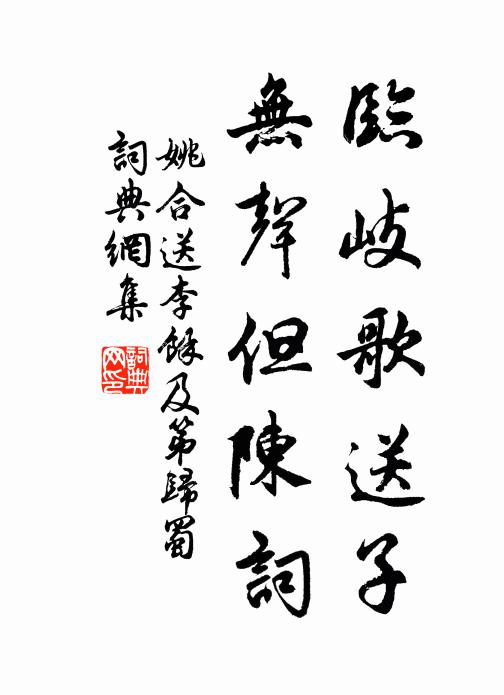 臨岐歌送子
無聲但陳詞
姚合送李餘及第歸蜀
詞典網集
詞典網印